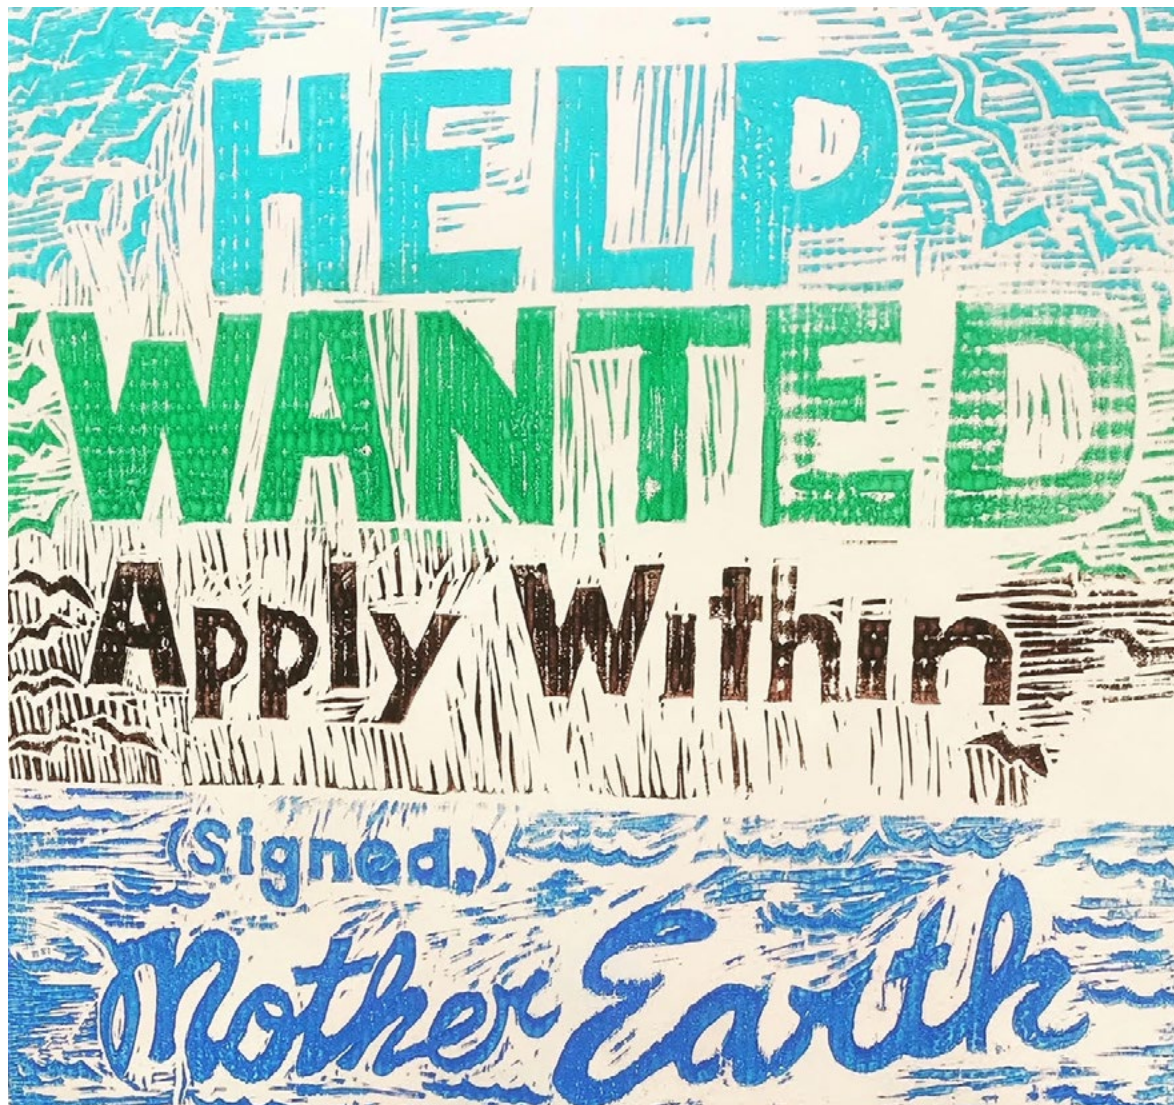 HELP
WANTED
Apply Within
(Signed,)
Mother Earth